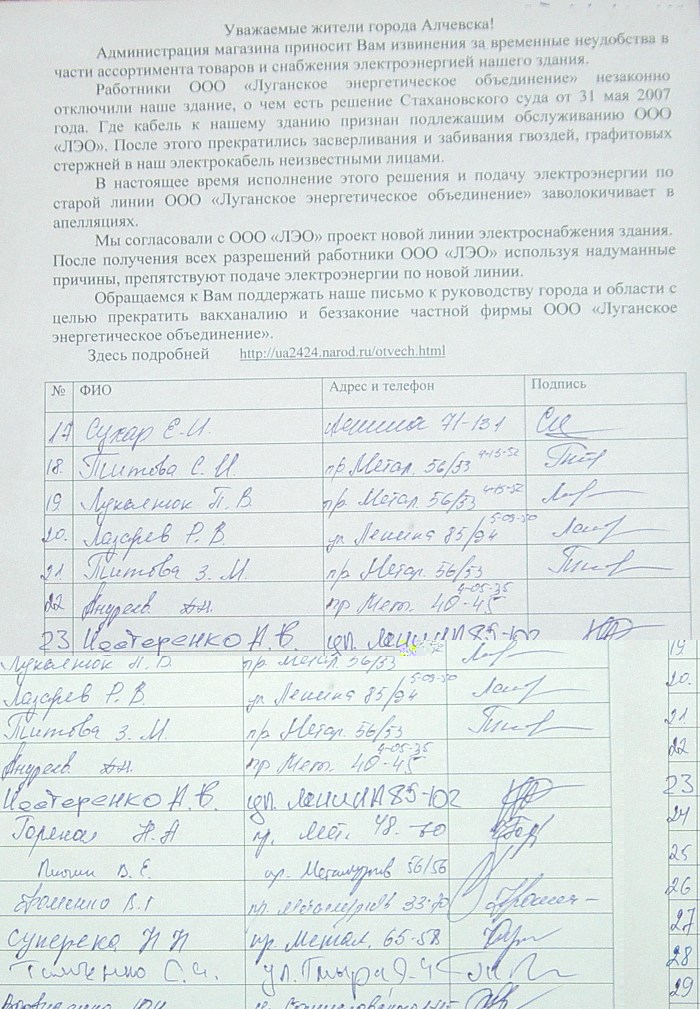 Уважаемые жители города Алчевска!
Администрация магазина приносит Вам извинения за временные неудобства в
части ассортимента товаров и снабжения электроэнергией нашего здания.
Работники ООО «Луганское энергетическое объединение» незаконно
отключили наше здание, о чем есть решение Стахановского суда от 31 мая 2007
года. Где кабель к нашему зданию признан подлежащим обслуживанию ООО
«ЛЭО». После этого прекратились засверливания и забивания гвоздей, графитовых
стержней в наш электрокабель неизвестными лицами.
В настоящее время исполнение этого решения и подачу электроэнергии по
старой линии ООО «Луганское энергетическое объединение» заволокичивает в
апелляциях.
Мы согласовали с ООО «ЛЭО» проект новой линии электроснабжения здания.
После получения всех разрешений работники ООО «ЛЭО» используя надуманные
причины, препятствуют подаче электроэнергии по новой линии.
Обращаемся к Вам поддержать наше письмо к руководству города и области с
целью прекратить вакханалию и беззаконие частной фирмы ООО «Луганское
энергетическое объединение».
Здесь подробней http://ua2424.narod.ru/otvech.html
№ ФИО Адрес и телефон Подпись
17 Сухар Е.И. Ленина 71-131
18. Титова С. И пр. Метал. 56/53 4-15-52
19 Лукьянюк П. В. пр. Метал. 56/53 4-15-52
20. Лазарев Р. В. ул Ленина 85/94 5-09-50
21 Титова З. М. пр. Метал. 56/53
22 Андреев пр Мет. 40-45 4-05-35
23 Нестеренко А.В. ул. Ленина 85-102
Лукьянюк П. В. пр. Метал. 56/53 19
Лазарев Р. В. ул Ленина 85/94 5-09-50 20.
Титова З. М. пр. Метал. 56/53 21
Андреев пр Мет. 40-45 4-05-35 22
Нестеренко А.В. ул. Ленина 85-102 23
Н.А пр. Мет. 48-60 24
В. Е. пр. Металлургов 56/56 25
пр. Металлургов 26
Суперека Н Н пр. Метал. 65-58 27
Тимченко С.И. 28
29